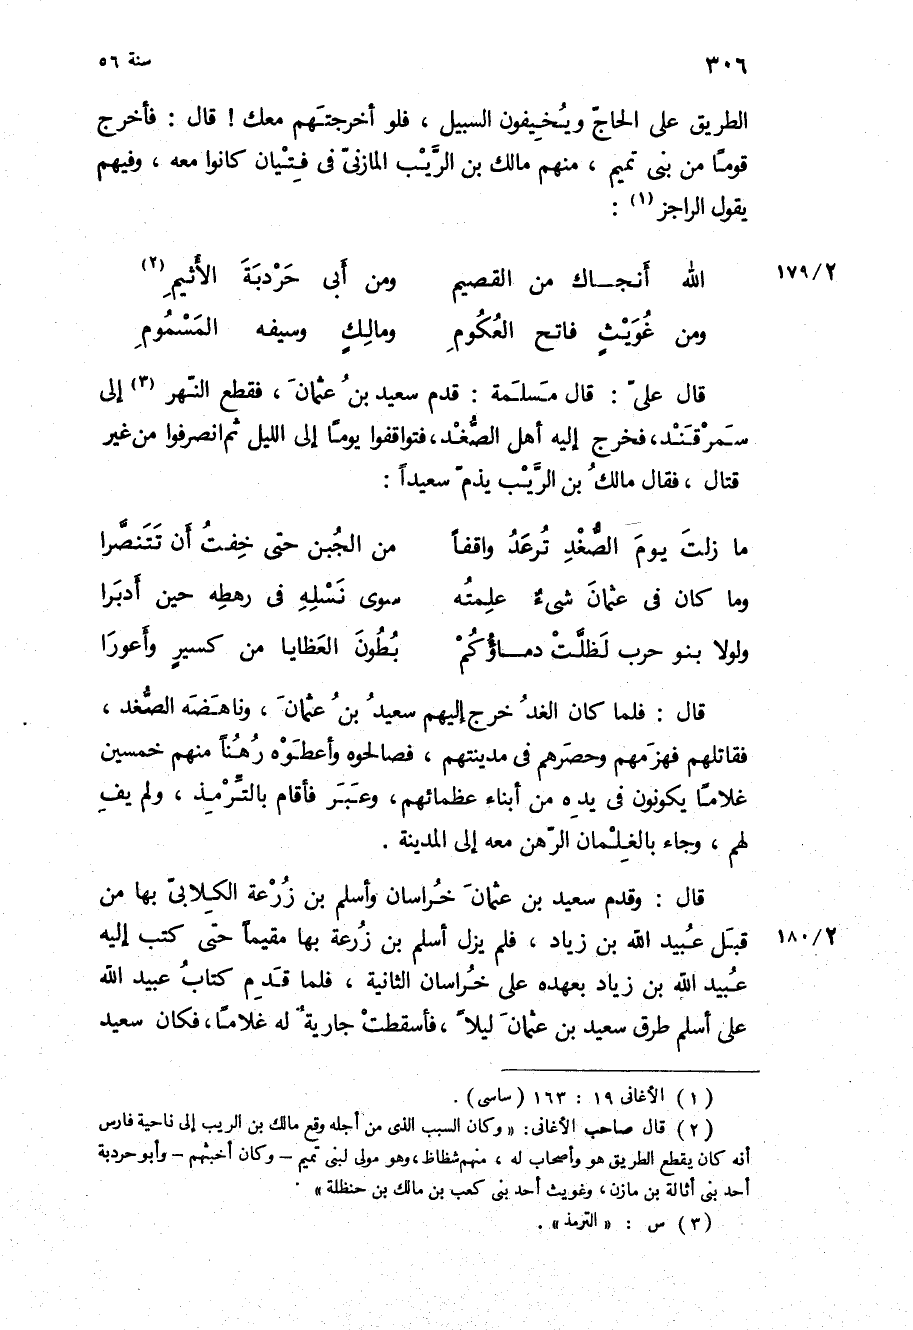 ٣٠٦ سنة ٥٦
الطريق على الحاجّ ويُخِيفون السبيل ، فلو أخرجتَهم معك ! قال : فأخرج
قومًا من بنى تميم ، منهم مالك بن الرَّيْب المازنىّ فى فِتْيان كانوا معه ، وفيهم
يقول الراجز (١) :
١٧٩/٢ الله أَنجـــاك من القصيم ومن أَبى حَرْدبَةَ الأَثيمِ (٢)
ومن غُوَيْثٍ فاتح العُكُومِ ومالِكٍ وسيفه المَسْمُومِ
قال علىّ : قال مَسلَمة : قدم سعيد بنُ عثمانَ ، فقطع النّهر (٣) إلى
سَمرْقَنْد، فخرج إليه أهل الصُّغْد، فتواقفوا يومًا إلى الليل ثم انصرفوا من غير
قتال ، فقال مالكُ بن الرَّيْب يذمّ سعيداً :
ما زلتَ يومَ الصُّغْدِ تُرعَدُ واقفاً من الجُبن حتى خِفتُ أَن تَتَنصَّرا
وما كان فى عثمانَ شىءٌ علِمتُه سوى نَسْلِهِ فى رهطِه حين أَدبَرا
ولولا بنو حرب لَظلَّتْ دمــاؤُكُمْ بُطُونَ العَظايا من كسيرٍ وأَعورَا
قال : فلما كان الغدُ خرج إليهم سعيدُ بنُ عثمانَ ، وناهَضَه الصُّغد ،
فقاتلهم فهزَمهم وحصَرهم فى مدينتهم ، فصالحوه وأعطَوْه رُهُنًا منهم خمسين
غلامًا يكونون فى يدِه من أبناء عظمائهم، وعَبَر فأقام بالتِّرْمِذ ، ولم يفِ
لهم ، وجاء بالغِلْمان الرّهن معه إلى المدينة .
قال : وقدم سعيد بن عثمانَ خُراسان وأسلم بن زُرْعة الكِلابىّ بها من
١٨٠/٢ قبَل عُبيد الله بن زياد ، فلم يزل أسلم بن زُرعة بها مقيماً حتّى كتب إليه
عُبيد الله بن زياد بعهده على خُراسان الثانية ، فلما قَدِم كتابُ عبيد الله
على أسلم طرق سعيد بن عثمانَ ليلاً ، فأسقطتْ جاريةٌ له غلامًا، فكان سعيد
(١) الأغانى ١٩ : ١٦٣ (ساسى) .
(٢) قال صاحب الأغانى: « وكان السبب الذى من أجله وقع مالك بن الريب إلى ناحية فارس
أنه كان يقطع الطريق هو وأصحاب له ، منهم شظاظ، وهو مولى لبنى تميم – وكان أخبثهم – وأبو حردبة
أحد بنى أثالة بن مازن، وغويث أحد بنى كعب بن مالك بن حنظلة » .
(٣) س : « الترمذ » .